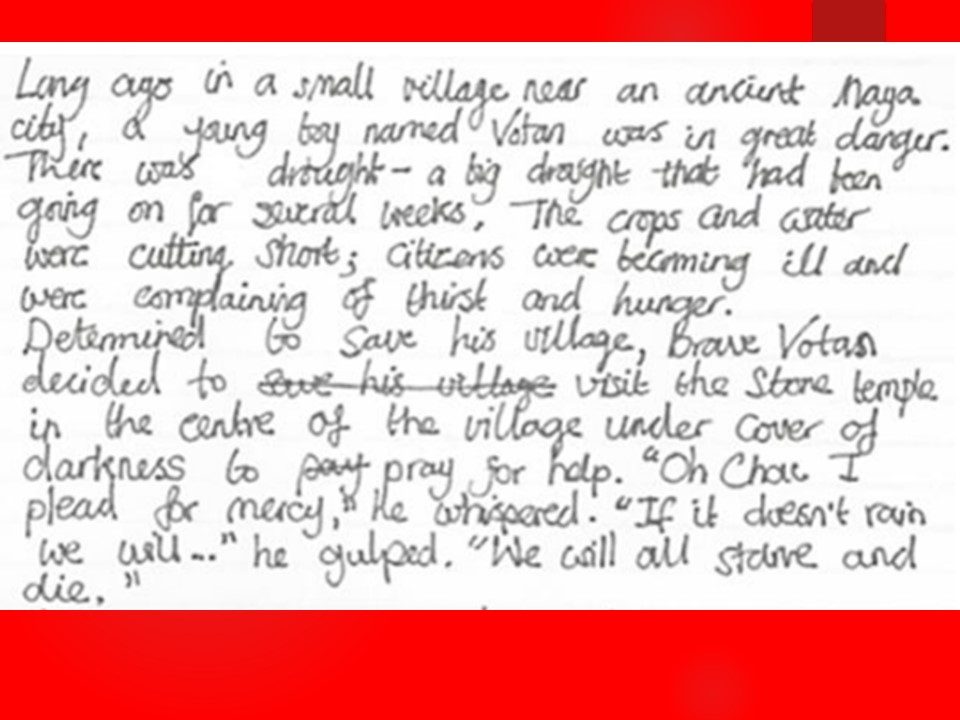 Long ago in a small village near an ancient Maya
city, a young boy named Votan was in great danger.
There was drought - a big drought that had been
going on for several weeks. The crops and water
were cutting short; citizens were becoming ill and
were complaining of thirst and hunger.
Determined to save his village, Brave Votan
decided to save his village visit the Stone temple
in the centre of the village under cover of
darkness to pay pray for help. "Oh Chac I
plead for mercy," he whispered. "If it doesn't rain
we will..." he gulped. "We will all starve and
die."